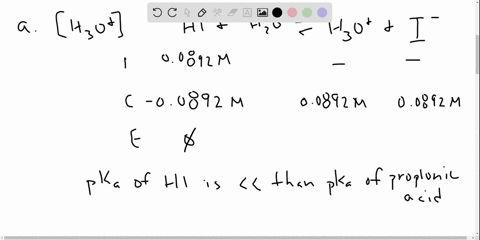 a. [H3O+] HI + H2O ⇌ H3O+ + I-
I 0.0892 M — —
C -0.0892 M 0.0892 M 0.0892 M
E ∅
pKa of HI is << than pka of propionic
acid